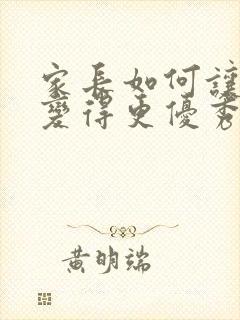 家長如何讓
變得更優秀
黃明端